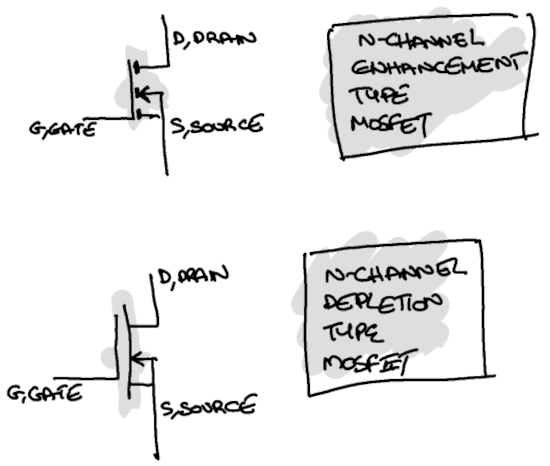 D, DRAIN
G, GATE
S, SOURCE
N-CHANNEL
ENHANCEMENT
TYPE
MOSFET
D, DRAIN
G, GATE
S, SOURCE
N-CHANNEL
DEPLETION
TYPE
MOSFET